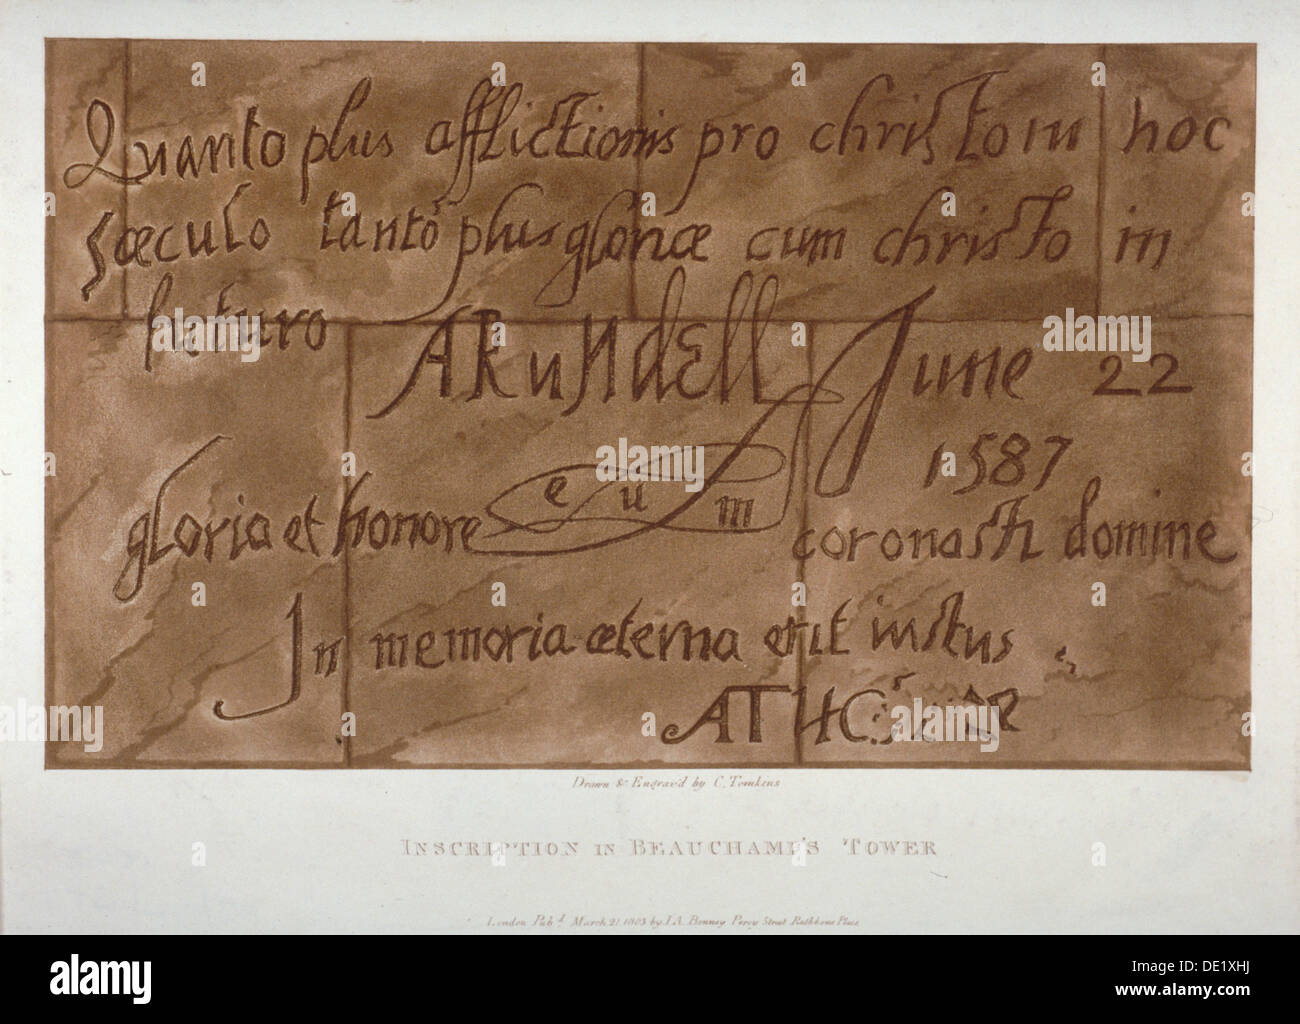 Quanto plus afflictionis pro christo in hoc
sæculo tanto plus gloriæ cum christo in
futuro
ARundEll June 22
1587
gloria et honore eum coronasti domine
In memoria æterna erit iustus
ATH
Drawn & Engrav'd by C. Tomkins
INSCRIPTION IN BEAUCHAMP'S TOWER
London Pubd. March 21 1803 by J.A. Bonney Percy Street Rathbone Place
alamy
www.alamy.com
DE1XHJ